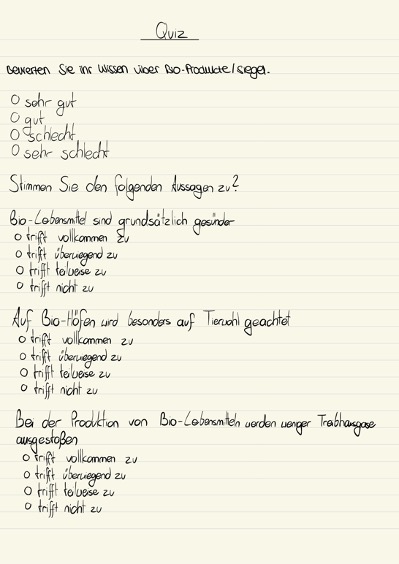 Quiz
Bewerten Sie ihr Wissen über Bio-Produkte/siegel.
sehr gut
gut
schlecht
sehr schlecht
Stimmen Sie den folgenden Aussagen zu?
Bio-Lebensmittel sind grundsätzlich gesünder
trifft vollkommen zu
trifft überwiegend zu
trifft teilweise zu
trifft nicht zu
Auf Bio-Höfen wird besonders auf Tierwohl geachtet
trifft vollkommen zu
trifft überwiegend zu
trifft teilweise zu
trifft nicht zu
Bei der Produktion von Bio-Lebensmitteln werden weniger Treibhausgase
ausgestoßen
trifft vollkommen zu
trifft überwiegend zu
trifft teilweise zu
trifft nicht zu